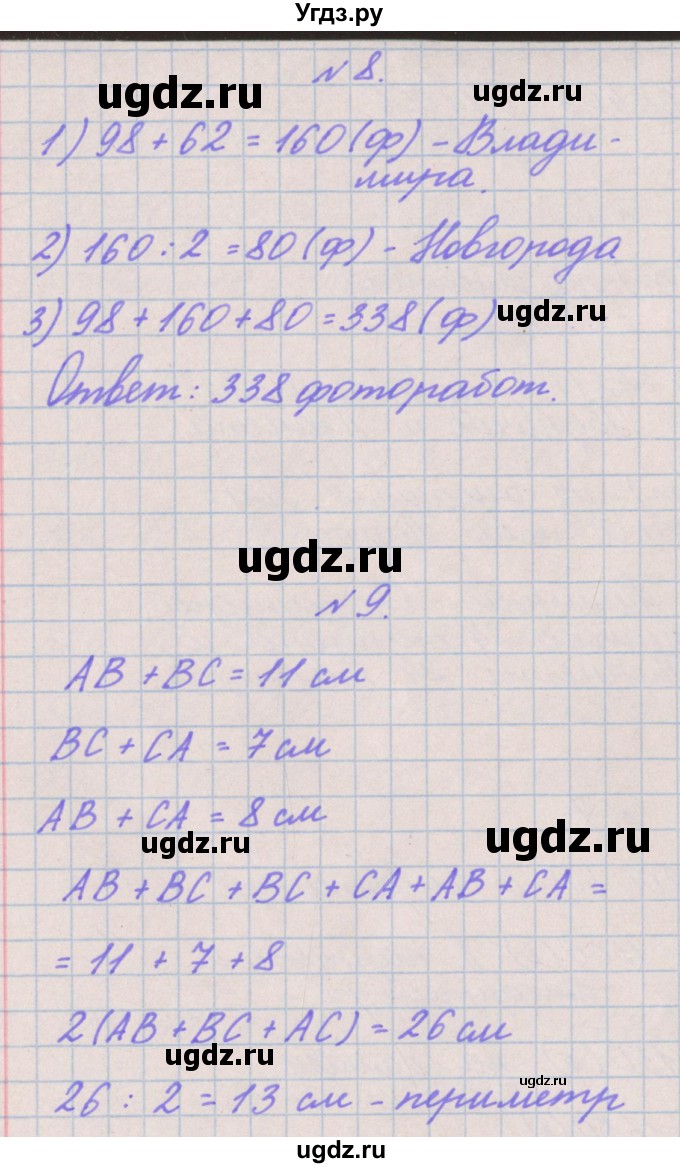 Угдз.ру
N 8.
ugdz.ru ugdz.ru
1) 98 + 62 = 160 (ф) - Влади-
мира.
2) 160 : 2 = 80 (ф) - Новгорода
3) 98 + 160 + 80 = 338 (ф)
ugdz.ru
Ответ: 338 фоторабот.
ugdz.ru
N 9.
AB + BC = 11 см
BC + CA = 7 см
AB + CA = 8 см
ugdz.ru ugdz.ru
AB + BC + BC + CA + AB + CA =
= 11 + 7 + 8
2 (AB + BC + AC) = 26 см
ugdz.ru
ugdz.ru
26 : 2 = 13 см - периметр
ugdz.ru